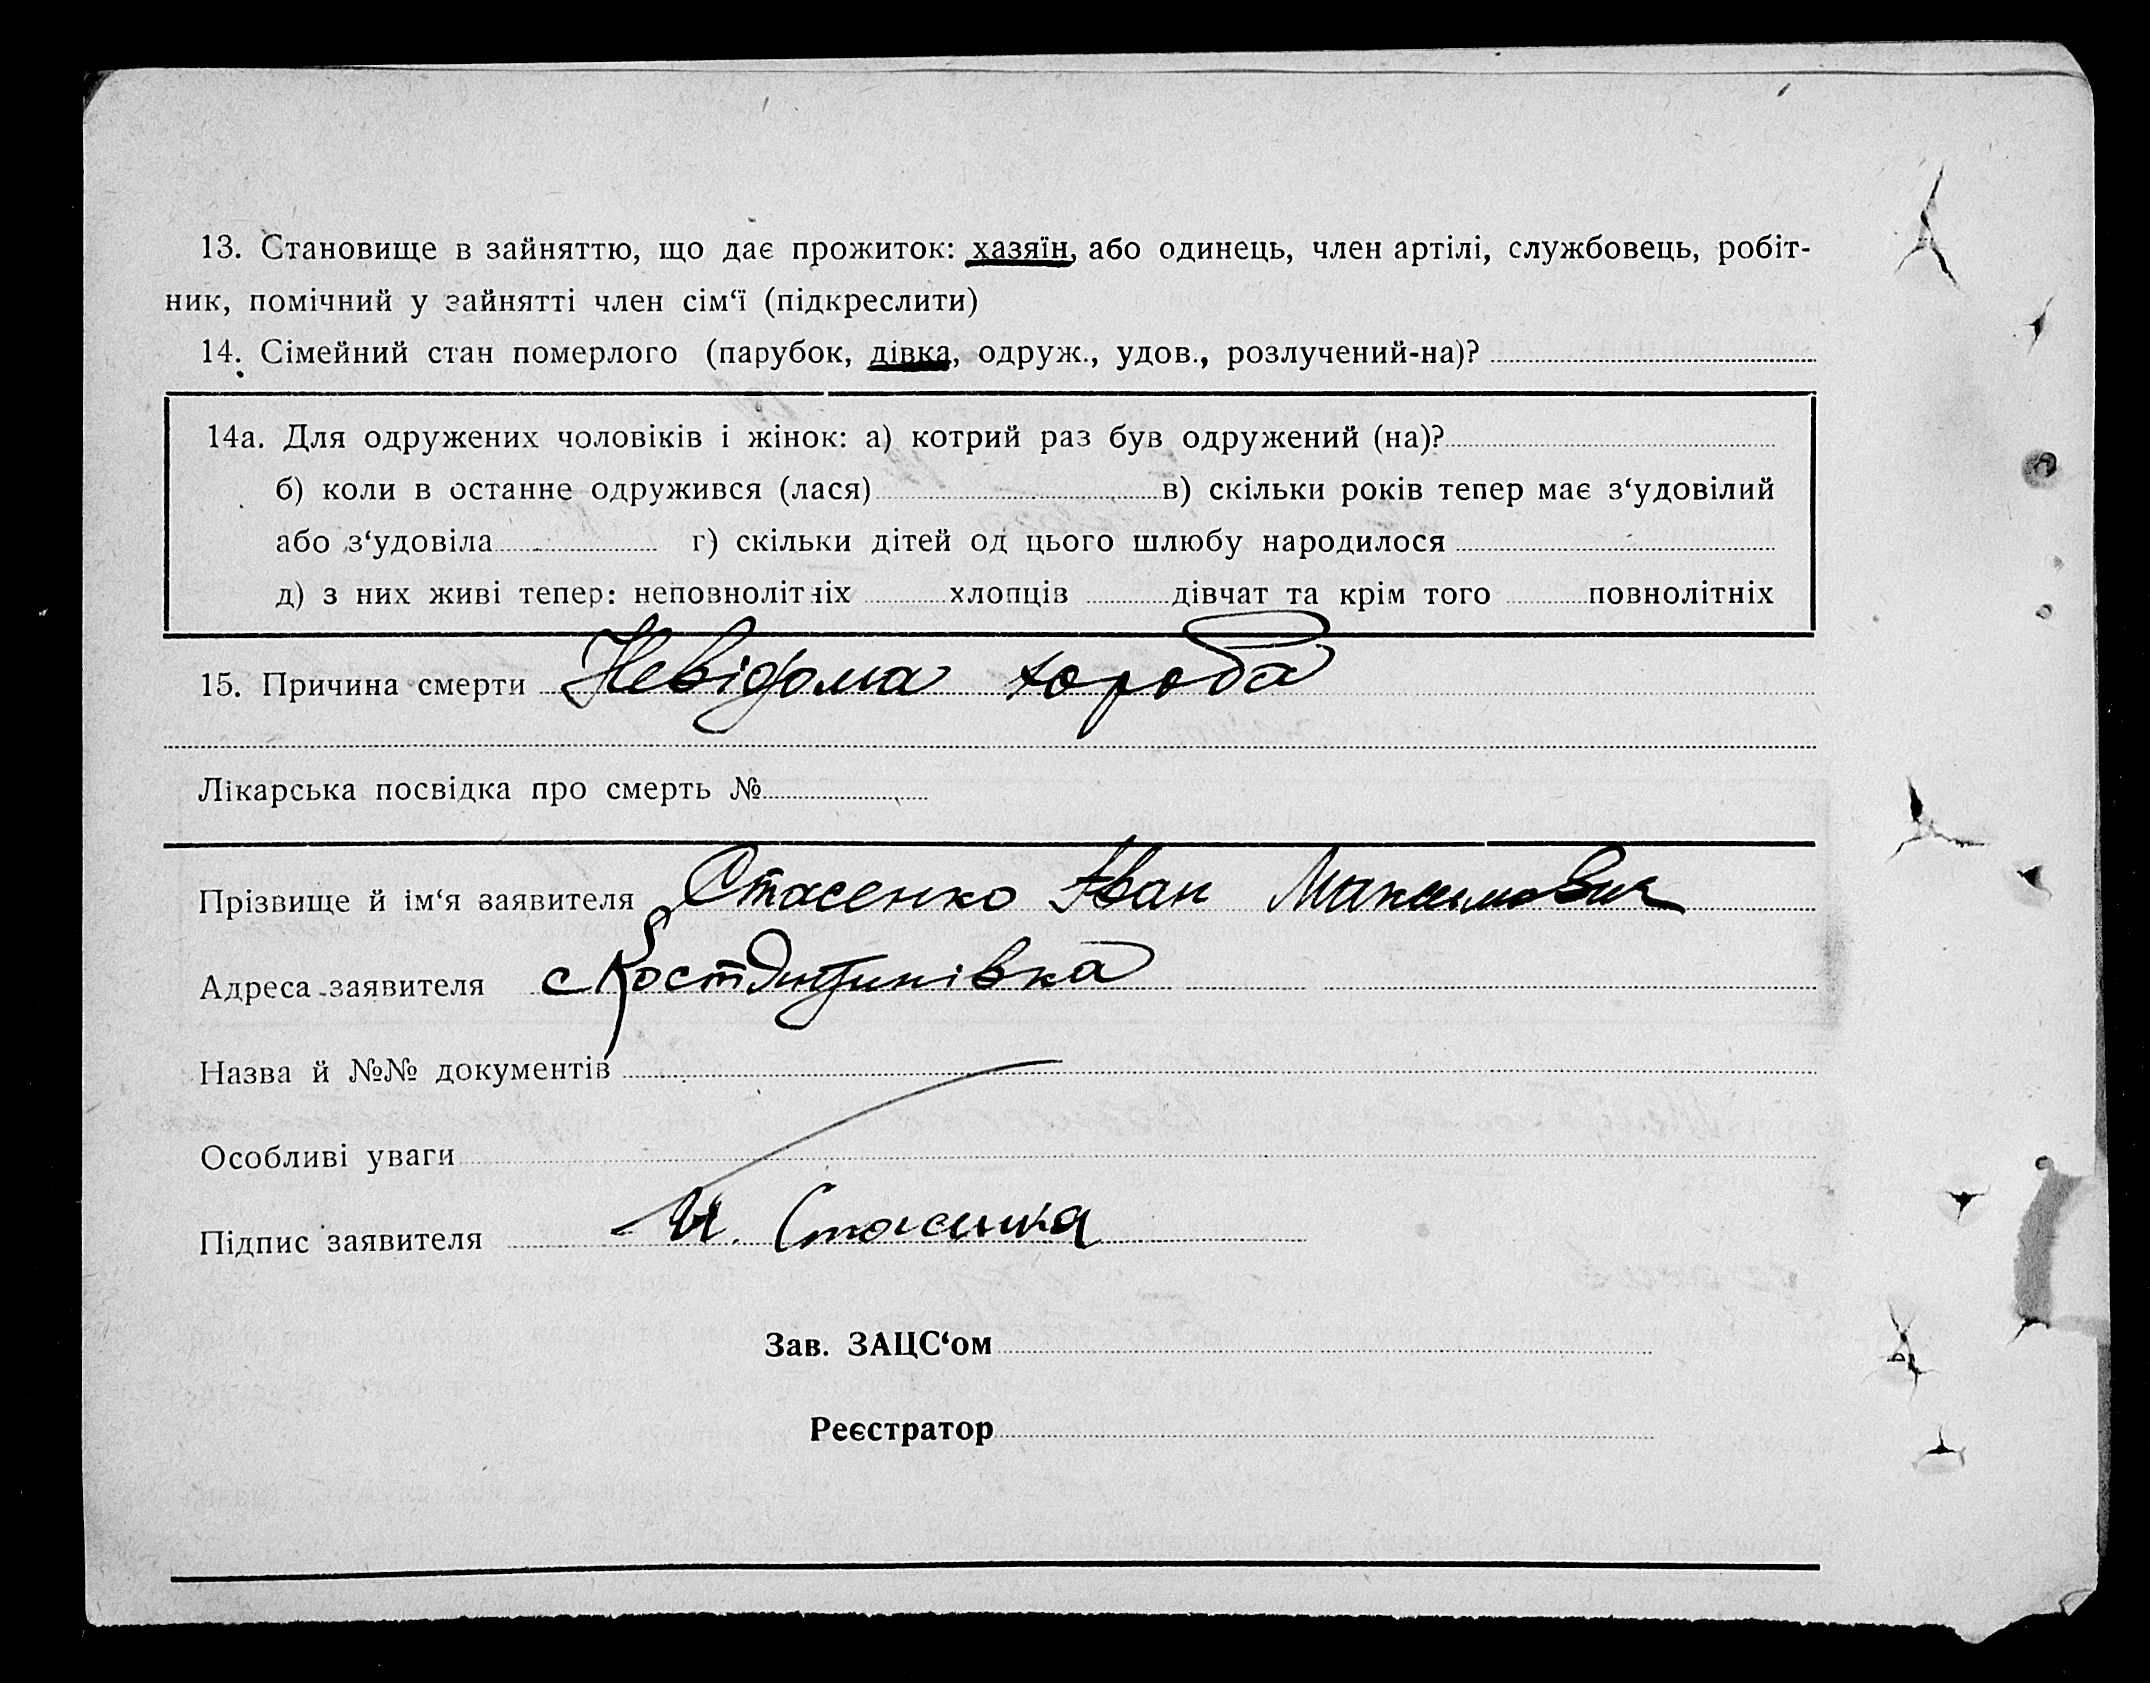 13. Становище в зайняттю, що дає прожиток: хазяїн, або одинець, член артілі, службовець, робіт-
ник, помічний у зайнятті член сім‘ї (підкреслити)
14. Сімейний стан померлого (парубок, дівка, одруж., удов., розлучений-на)?
14а. Для одружених чоловіків і жінок: а) котрий раз був одружений (на)?
б) коли в останне одружився (лася) в) скільки років тепер має з‘удовілий
або з‘удовіла г) скільки дітей од цього шлюбу народилося
д) з них живі тепер: неповнолітніх хлопців дівчат та крім того повнолітніх
15. Причина смерти Невідома хороба
Лікарська посвідка про смерть №
Прізвище й ім‘я заявителя Стасенко Іван Максимович
Адреса заявителя с
Назва й №№ документів
Особливі уваги
Підпис заявителя И. Стасенка
Зав. ЗАЦС‘ом
Реєстратор